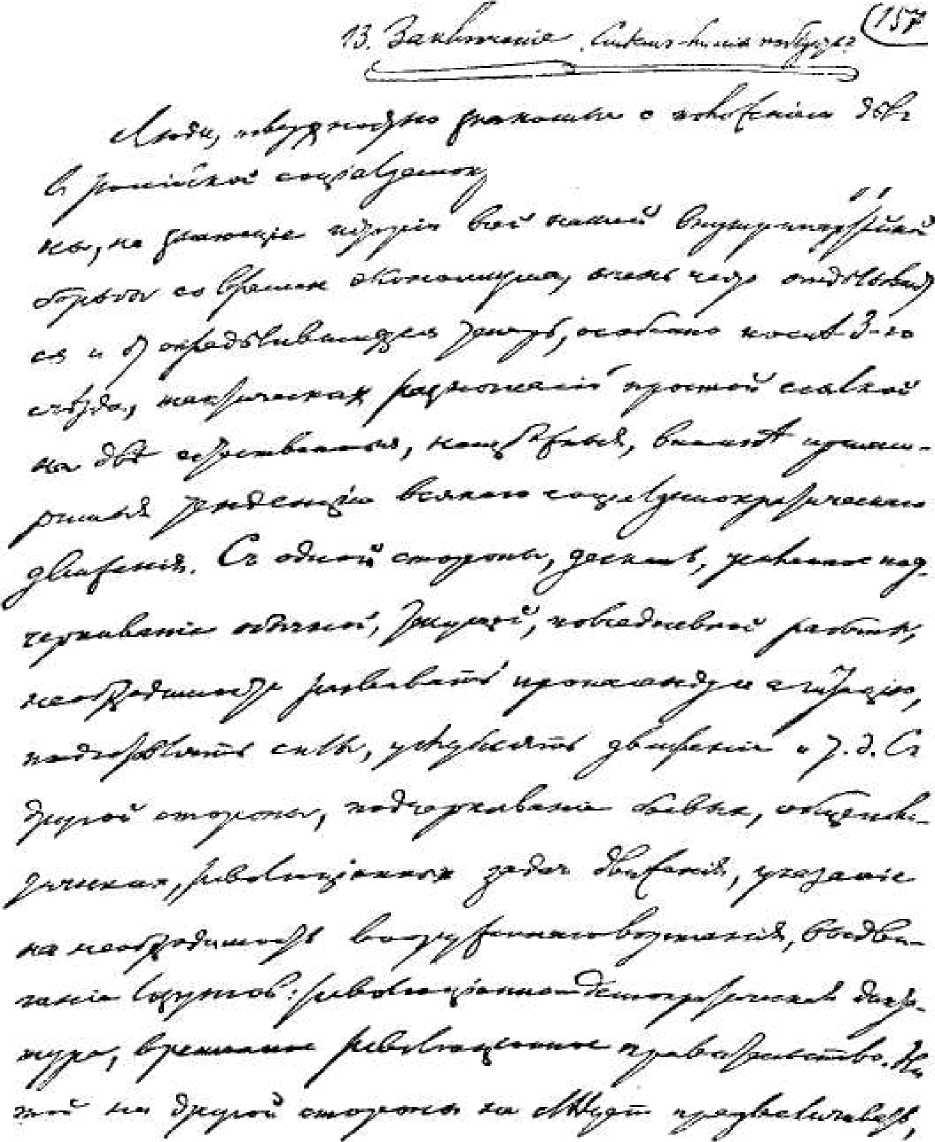 157
13. Заключение. Смеем-ли мы победить?
Люди, поверхностно знакомые с положением дел
в российской социалдемок
ны, не знающие истории всей нашей внутрипартийной
борьбы со времен экономизма, очень часто отделывают
ся и от определившихся теперь, особенно после 3-го
съезда, тактических разногласий простой ссылкой
на две естественные, неизбежные, вполне примиримые
тенденции всякого социалдемократического
движения. С одной стороны, дескать, усиленное под-
черкивание обычной, текущей, повседневной работы,
необходимости развивать пропаганду и агитацию,
подготовлять силы, углублять движение и т. д. С
другой стороны, подчеркивание боевых, общеполи-
тических, революционных задач движения, указание
на необходимость вооруженного восстания, выдви-
гание лозунгов: революционно-демократическая дикта-
тура, временное революционное правительство. Ни
той ни другой стороны не следует преувеличивать,